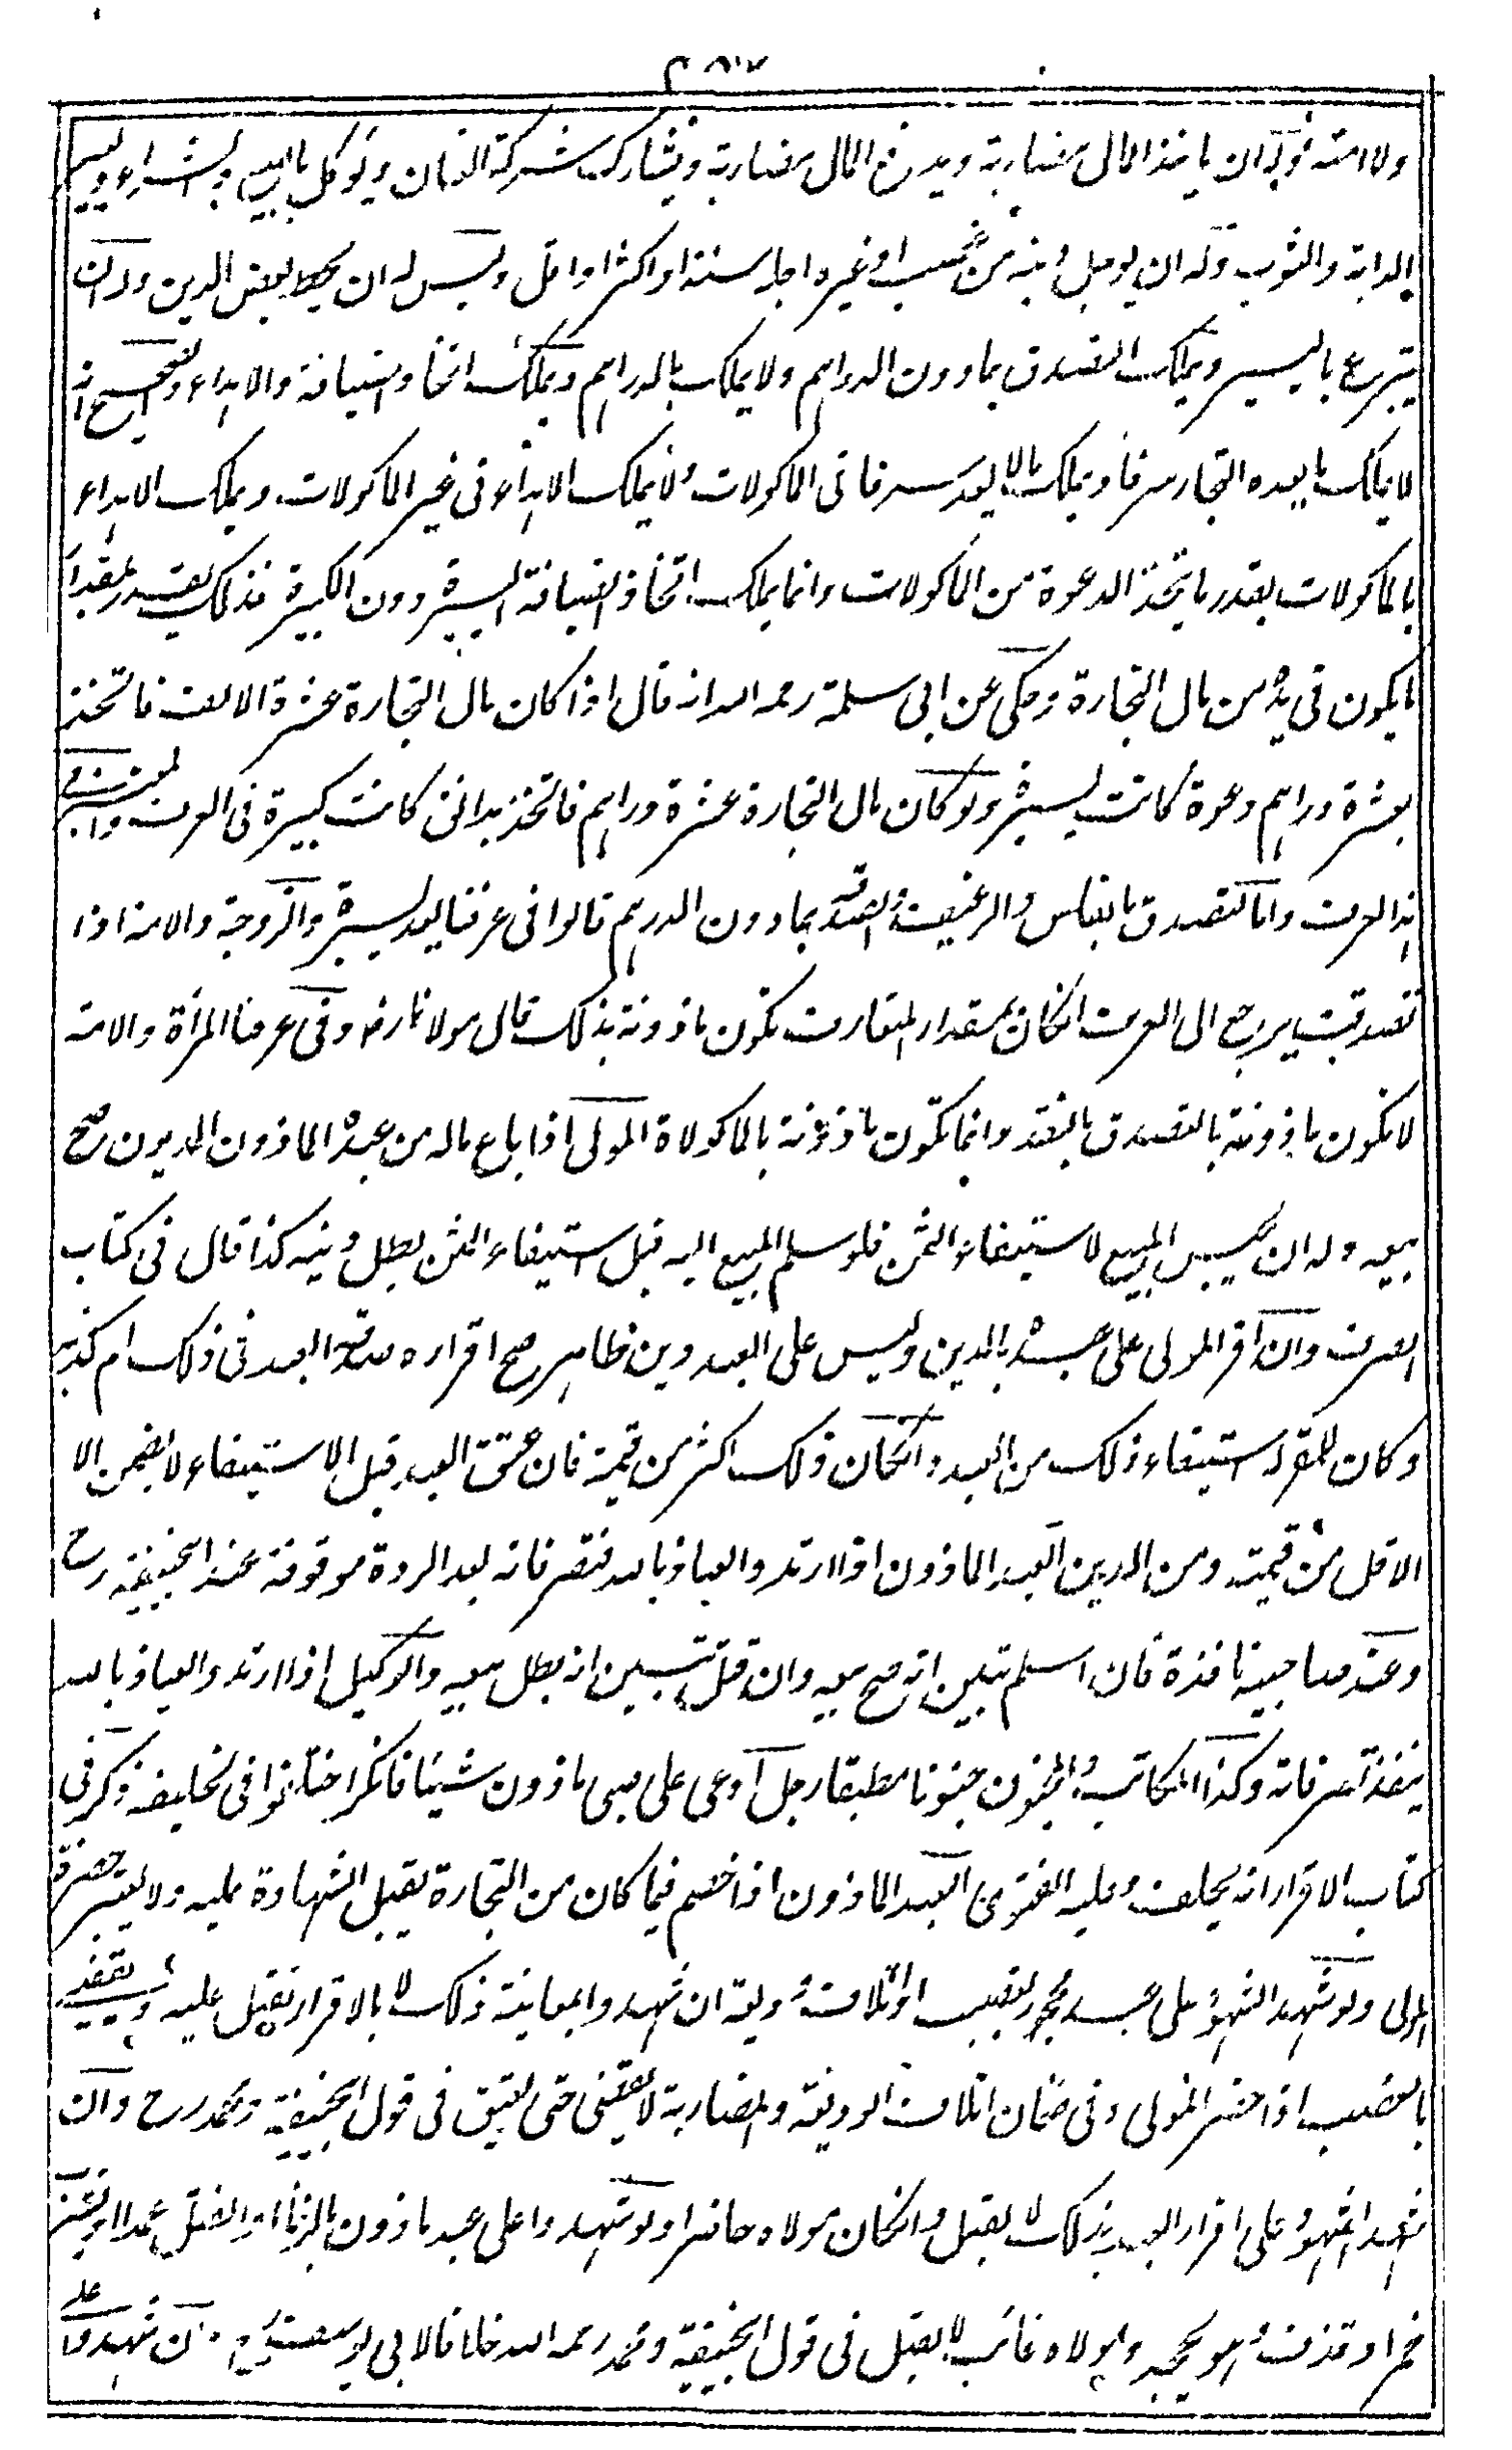 ولا امته وله ان ياخذ المال مضاربة ويدفع المال مضاربة ويشارك شركة العنان ويوكل بالبيع والشراء ويعير
الدابة والثوب وله ان يوجل دينه من غصب او غيره اجله سنة او اكثر او اقل وليس له ان يحط بعض الدين وله ان
يتبرع باليسير ويملك التصدق بما دون الدراهم ولا يملك بالدراهم ويملك اتخاذ الضيافة والاهداء والصحيح انه
لا يملك ما يعده التجار سرفا ويملك ما لا يعد سرفا فى الماكولات ولا يملك الاهداء فى غير الماكولات ويملك الاهداء
بالماكولات بقدر ما يتخذ الدعوة من الماكولات وانما يملك اتخاذ الضيافة اليسيرة دون الكبيرة فذلك يقدر بمقدار
ما يكون فى يده من مال التجارة وحكى عن ابى سلمة رحمه الله انه قال اذا كان مال التجارة عشرة الالف فاتخذ
بعشرة دراهم دعوة كانت يسيرة ولو كان مال التجارة عشرة دراهم فاتخذ بدانق كانت كبيرة فى العرف والمعتبر فى
هذا العرف واما التصدق بالفلس والرغيف والفضة بما دون الدرهم قالوا فى عرفنا يعد يسيرة والزوجة والامة اذا
تصدقت يرجع الى العرف انكان بمقدار المتعارف تكون ماذونة بذلك قال مولانا رضه وفى عرفنا المرأة والامة
لا تكون ماذونة بالتصدق بالنقد وانما تكون ماذونة بالماكولاة المولى اذا باع ماله من عبده الماذون المديون صح
بيعه وله ان يحبس المبيع لاستيفاء الثمن فلو سلم المبيع اليه قبل استيفاء الثمن بطل دينه كذا قال فى كتاب
الصرف وان اقر المولى على عبده بالدين وليس على العبد دين ظاهر صح اقراره صدقه العبد فى ذلك ام كذبه
وكان للمقر له استيفاء ذلك من العبد وانكان ذلك اكثر من قيمة فان عتق العبد قبل الاستيفاء لا يضمن الا
الاقل من قيمته ومن الدين العبد الماذون اذا ارتد والعياذ بالله فتصرفاته بعد الردة موقوفة عند ابيحنيفة رح
وعند صاحبيه نافذة فان اسلم تبين انه صح بيعه وان قتل تبين انه بطل بيعه والوكيل اذا ارتد والعياذ بالله
ينفذ تصرفاته وكذا المكاتب والمجنون جنونا مطبقا رجل ادعى على صبى ماذون شيئا فانكر اختلفوا فى تحليفه ذكر فى
كتاب الاقرار انه يحلف وعليه الفتوى العبد الماذون اذا خصم فيما كان من التجارة يقبل الشهادة عليه ولا يعتبر حضرة
المولى ولو شهد الشهود على عبد محجور بغصب او اتلاف وديعة ان شهدوا بمعاينة ذلك لا بالاقرار تقبل عليه ويقضى
بالغصب اذا حضر المولى وفى ضمان اتلاف الوديعة والمضاربة لا يقضى حتى يعتق فى قول ابيحنيفة ومحمد رح وان
شهد الشهود على اقرار العبد بذلك لا يقبل وانكان مولاه حاضرا ولو شهدوا على عبد ماذون بالزنا او القتل عمدا او شرب
خمر او قذف وهو يجحد ومولاه غائب لا يقبل فى قول ابيحنيفة ومحمد رحمه الله خلافا لابى يوسف رح وان شهدوا على